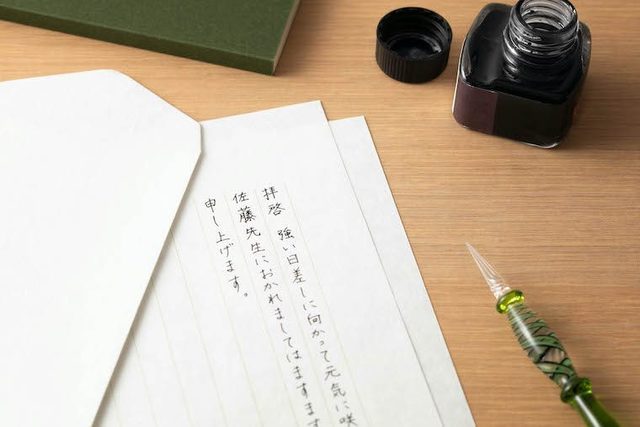 拝啓　強い日差しに向かって元気に咲
佐藤先生におかれましてはますます
申し上げます。